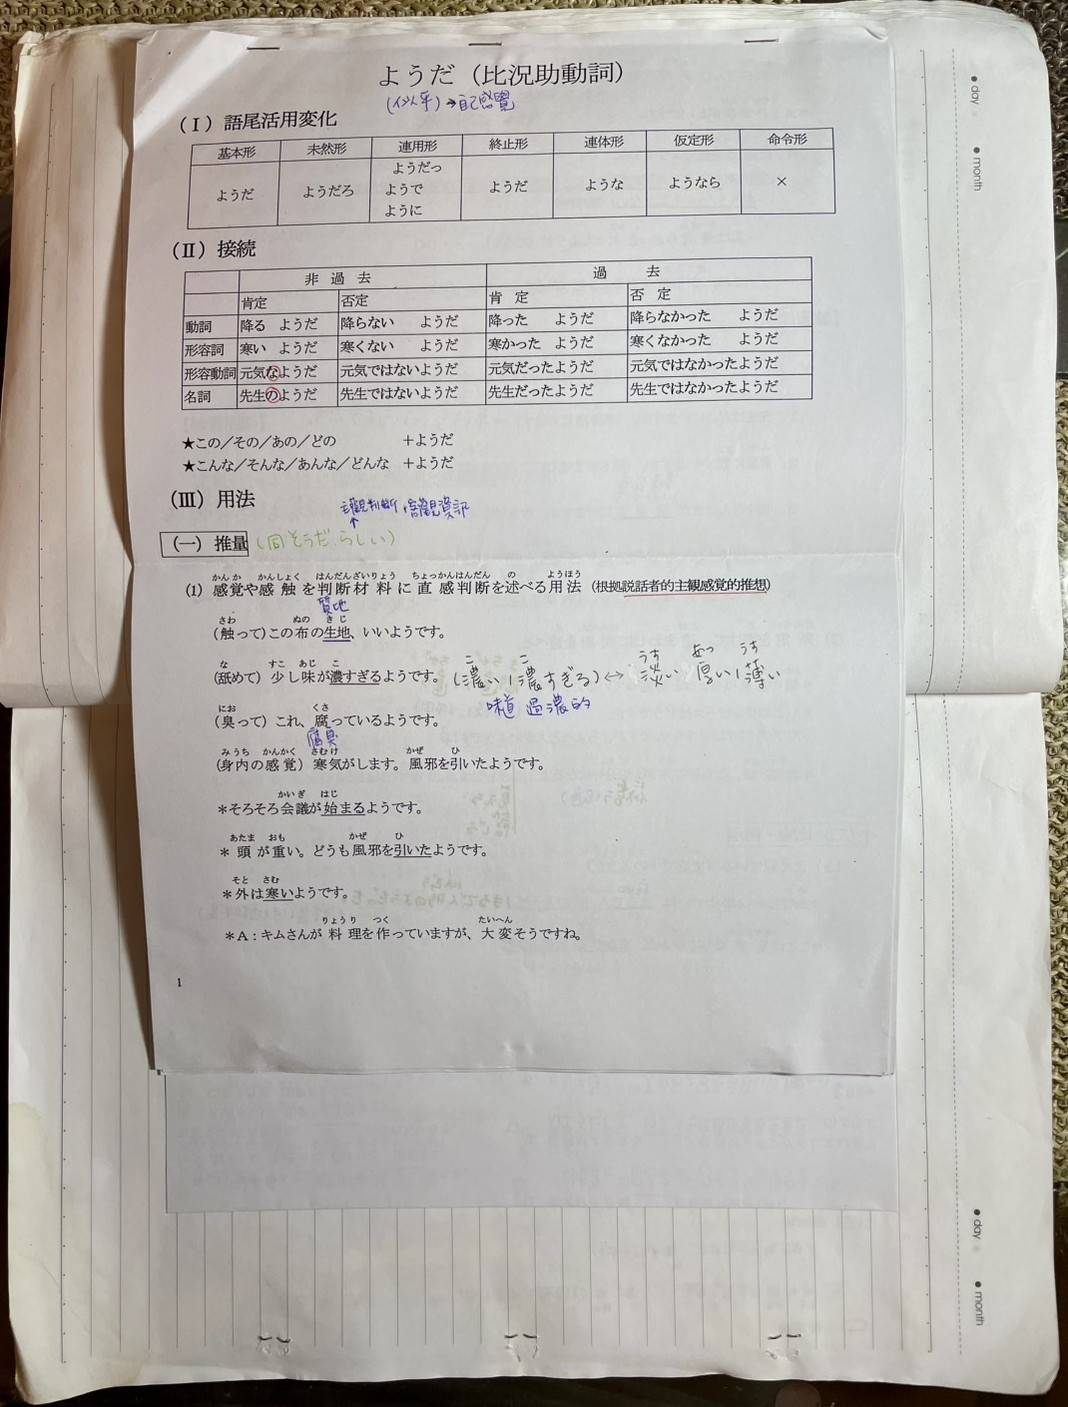 ようだ（比況助動詞）
(似乎)→自己感覺
（Ⅰ）語尾活用変化
基本形 未然形 連用形 終止形 連体形 仮定形 命令形
ようだ ようだろ ようだっ ようで ように ようだ ような ようなら ×
（Ⅱ）接続
非過去 過去
肯定 否定 肯定 否定
動詞 降る ようだ 降らない ようだ 降った ようだ 降らなかった ようだ
形容詞 寒い ようだ 寒くない ようだ 寒かった ようだ 寒くなかった ようだ
形容動詞 元気なようだ 元気ではないようだ 元気だったようだ 元気ではなかったようだ
名詞 先生のようだ 先生ではないようだ 先生だったようだ 先生ではなかったようだ
★この／その／あの／どの ＋ようだ
★こんな／そんな／あんな／どんな ＋ようだ
（Ⅲ）用法
主觀判斷 客觀資訊
↑
（一）推量 (同そうだ、らしい)
かんか かんしょく はんだんざいりょう ちょっかんはんだん の ようほう
(1) 感覚や感触を判断材料に直感判断を述べる用法（根拠説話者的主観感覚的推想）
質地
さわ ぬの きじ
（触って)この布の生地、いいようです。
な すこ あじ こ
（舐めて）少し味が濃すぎるようです。
こ こ うす あつ うす
(濃い/濃すぎる)↔淡い 厚い/薄い
味道 過濃的
にお くさ
（臭って）これ、腐っているようです。
腐臭
みうち かんかく さむけ かぜ ひ
（身内の感覚）寒気がします。風邪を引いたようです。
かいぎ はじ
＊そろそろ会議が始まるようです。
あたま おも かぜ ひ
＊頭が重い。どうも風邪を引いたようです。
そと さむ
＊外は寒いようです。
りょうり つく たいへん
＊A：キムさんが料理を作っていますが、大変そうですね。
1
day
month
day
month